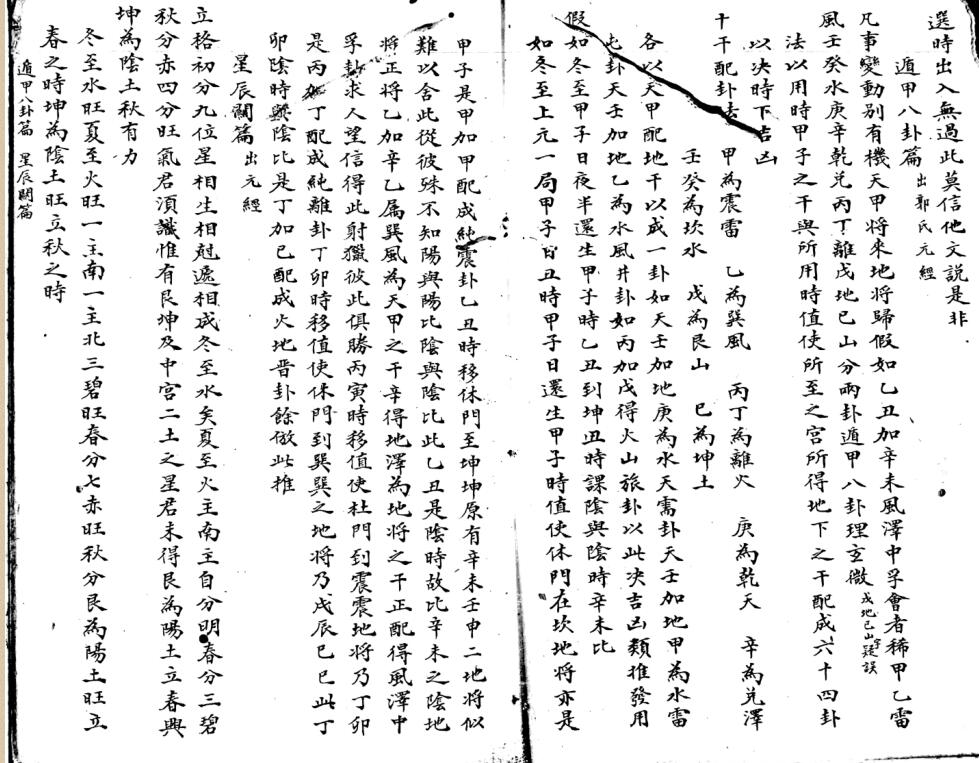 選時出入無過此莫信他文説是非
遁甲八卦篇 出郭氏元經
凡事變動别有機天甲將來地將歸假如乙丑加辛未風澤中孚會者稀甲乙雷
風壬癸水庚辛乾兑丙丁離戌地已山分兩卦遁甲八卦理玄微 戌地已山字疑誤
法以用時甲子之干與所用時值使所至之宫所得地下之干配成六十四卦
以决時下吉凶
十干配卦法 甲為震雷 乙為巽風 丙丁為離火 庚為乾天 辛為兑澤
壬癸為坎水 戊為艮山 巳為坤土
各以天甲配地干以成一卦如天壬加地庚為水天需卦天壬加地甲為水雷
屯卦天壬加地乙為水風井卦如丙加戊得火山旅卦以此决吉凶類推發用
假如冬至甲子日夜半還生甲子時乙丑到坤丑時課陰與陰時辛未比
如冬至上元一局甲子日丑時甲子日還生甲子時值使休門在坎地將亦是
甲子是甲加甲配成純震卦乙丑時移休門至坤坤原有辛未壬申二地將似
難以舍此從彼殊不知陽與陽比陰與陰比此乙丑是陰時故比辛未之陰地
將正將乙加辛乙屬巽風為天甲之干辛得地澤為地將之干正配得風澤中
孚卦求人望信得此射獵彼此俱勝丙寅時移值使杜門到震震地將乃丁卯
是丙加丁配成純離卦丁卯時移值使休門到巽巽之地將乃戊辰已巳此丁
卯陰時與陰比是丁加巳配成火地晋卦餘倣此推
星辰闗篇 出元經
立格初分九位星相生相尅遞相成冬至水矣夏至火主南主自分明春分三碧
秋分赤四分旺氣君湏識惟有艮坤及中宫二土之星君未得艮為陽土立春興
坤為陰土秋有力
冬至水旺夏至火旺一主南一主北三碧旺春分七赤旺秋分艮為陽土旺立
春之時坤為陰土旺立秋之時
遁甲八卦篇 星辰闗篇